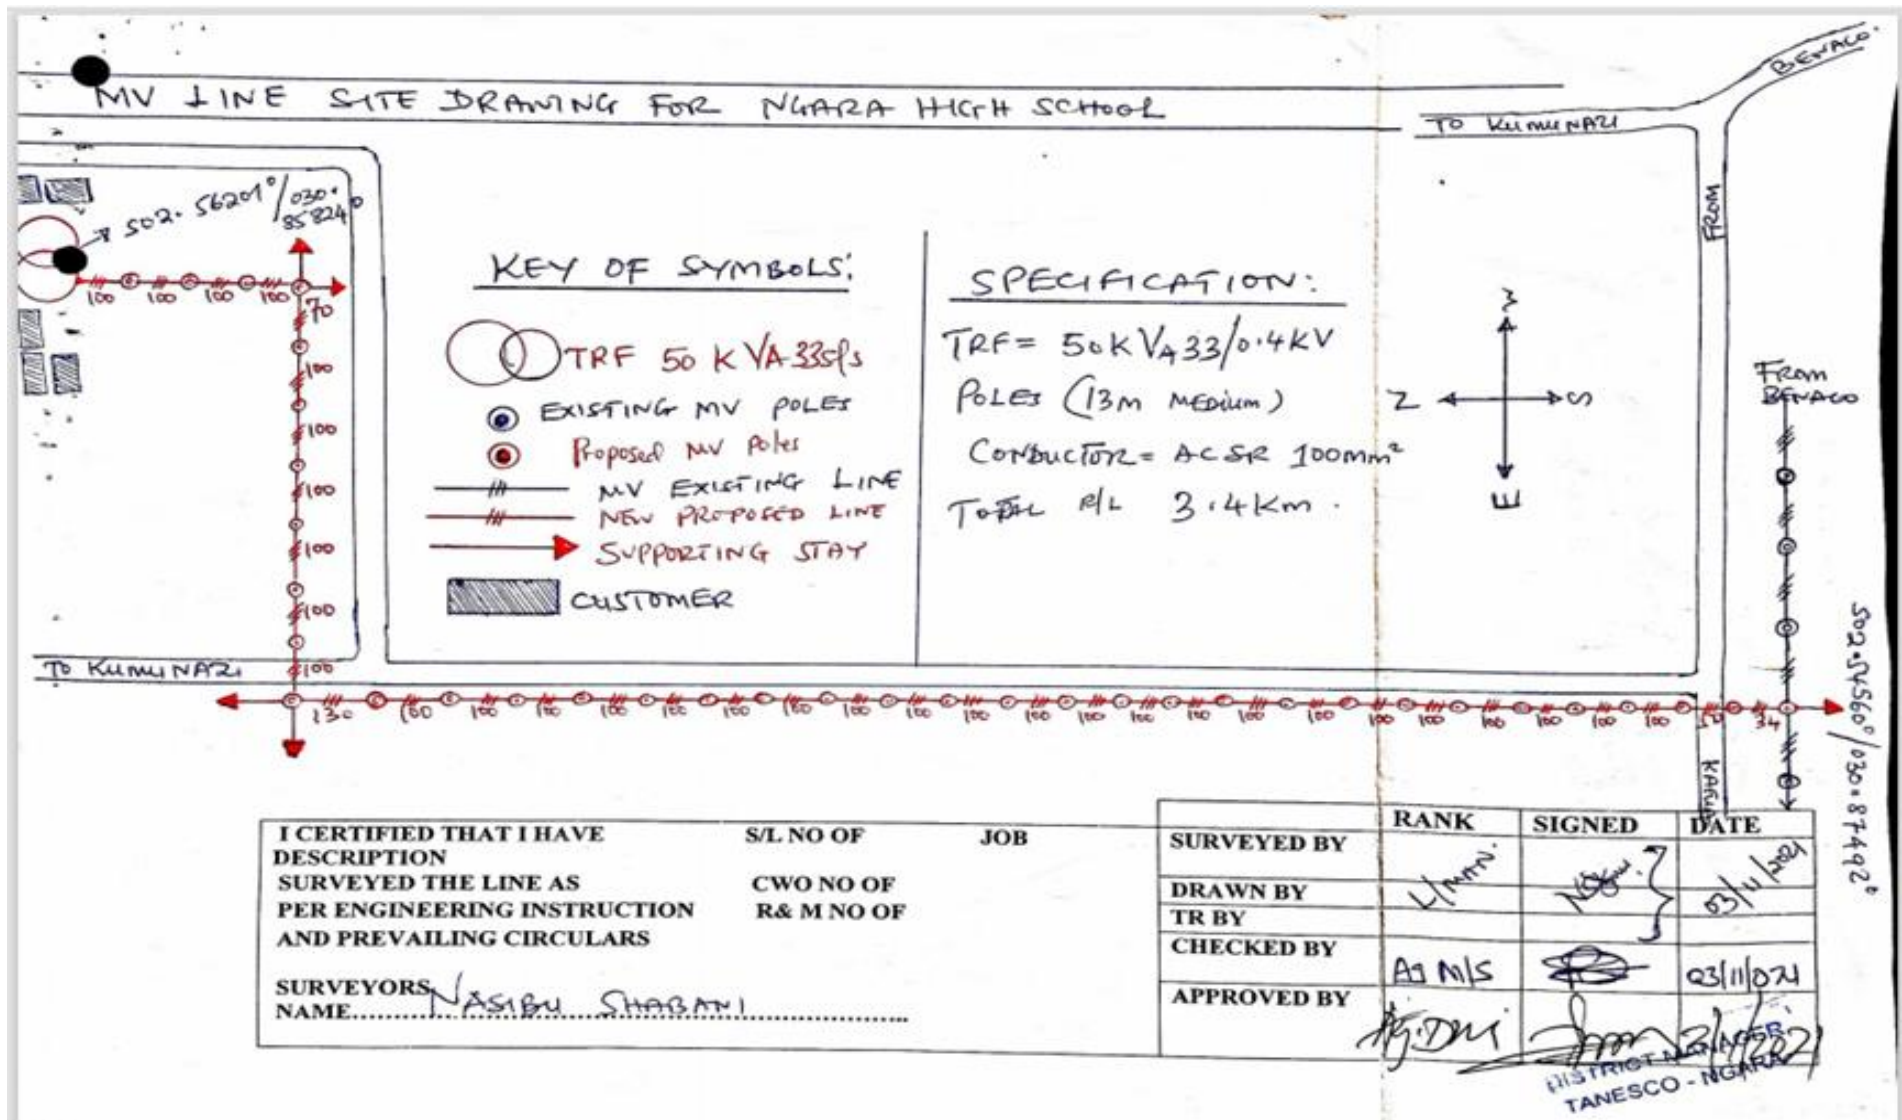 BENACO.
MV LINE SITE DRAWING FOR NGARA HIGH SCHOOL
TO KUMUNAZI
S02.56201°/030.85824°
FROM
KEY OF SYMBOLS:
TRF 50 KVA 33
EXISTING MV POLES
Proposed MV Poles
MV EXISTING LINE
NEW PROPOSED LINE
SUPPORTING STAY
CUSTOMER
SPECIFICATION:
TRF = 50KVA 33/0.4KV
POLES (13m MEDIUM)
CONDUCTOR = ACSR 100mm²
TOTAL R/L 3.4Km.
N S
E
From
BENACO
100 100 100 100
70
100
100
100
100
100
100
TO KUMUNAZI
130 100 100 100 100 100 100 100 100 100 100 100 100 100 100 100 100 100 100 100 100 100 34
S02.54560°/030.87492°
I CERTIFIED THAT I HAVE S/L NO OF JOB
DESCRIPTION
SURVEYED THE LINE AS CWO NO OF
PER ENGINEERING INSTRUCTION R& M NO OF
AND PREVAILING CIRCULARS
SURVEYORS
NAME NASIBU SHABANI
RANK SIGNED DATE
SURVEYED BY L/MAN. 03/11/2021
DRAWN BY
TR BY
CHECKED BY Ag M/S 03/11/021
APPROVED BY
DISTRICT MANAGER
TANESCO - NGARA